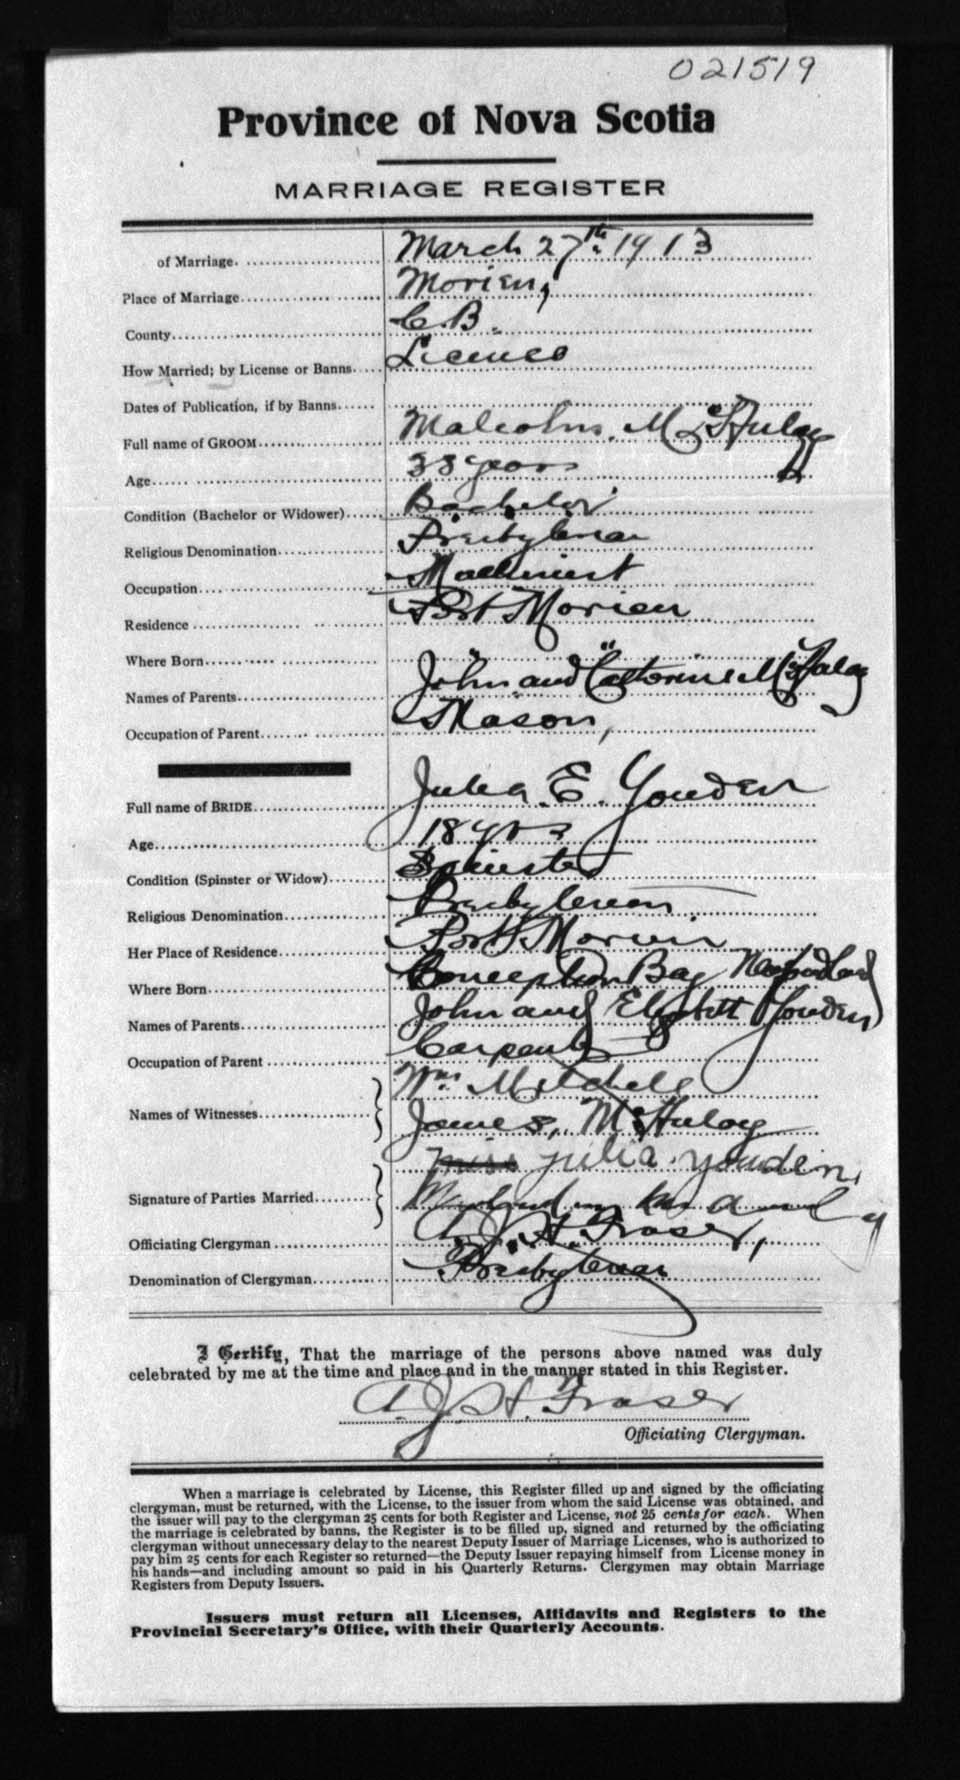 021519
Province of Nova Scotia
MARRIAGE REGISTER
of Marriage. March 27th. 1913
Place of Marriage Morien,
County C.B.
How Married; by License or Banns Licence
Dates of Publication, if by Banns
Full name of GROOM Malcolm. McAulay
Age 33 years
Condition (Bachelor or Widower) Bachelor
Religious Denomination Presbyterian
Occupation Machinist
Residence Port Morien
Where Born " "
Names of Parents John and Catherine McAulay
Occupation of Parent Mason,
Full name of BRIDE Julia. E. Youden
Age 18 yrs
Condition (Spinster or Widow) Spinster
Religious Denomination Presbyterian
Her Place of Residence Port Morien
Where Born Conception Bay Newfoundland
Names of Parents John and Elizabeth Youden
Occupation of Parent Carpenter
Names of Witnesses Wm Mitchell
James, McAulay
miss Julia Youden,
Signature of Parties Married
Officiating Clergyman A. J. H. Fraser,
Denomination of Clergyman Presbyterian
I Certify, That the marriage of the persons above named was duly
celebrated by me at the time and place and in the manner stated in this Register.
A. J. H. Fraser
Officiating Clergyman.
When a marriage is celebrated by License, this Register filled up and signed by the officiating
clergyman, must be returned, with the License, to the issuer from whom the said License was obtained, and
the issuer will pay to the clergyman 25 cents for both Register and License, not 25 cents for each. When
the marriage is celebrated by banns, the Register is to be filled up, signed and returned by the officiating
clergyman without unnecessary delay to the nearest Deputy Issuer of Marriage Licenses, who is authorized to
pay him 25 cents for each Register so returned—the Deputy Issuer repaying himself from License money in
his hands—and including amount so paid in his Quarterly Returns. Clergymen may obtain Marriage
Registers from Deputy Issuers.
Issuers must return all Licenses, Affidavits and Registers to the
Provincial Secretary's Office, with their Quarterly Accounts.